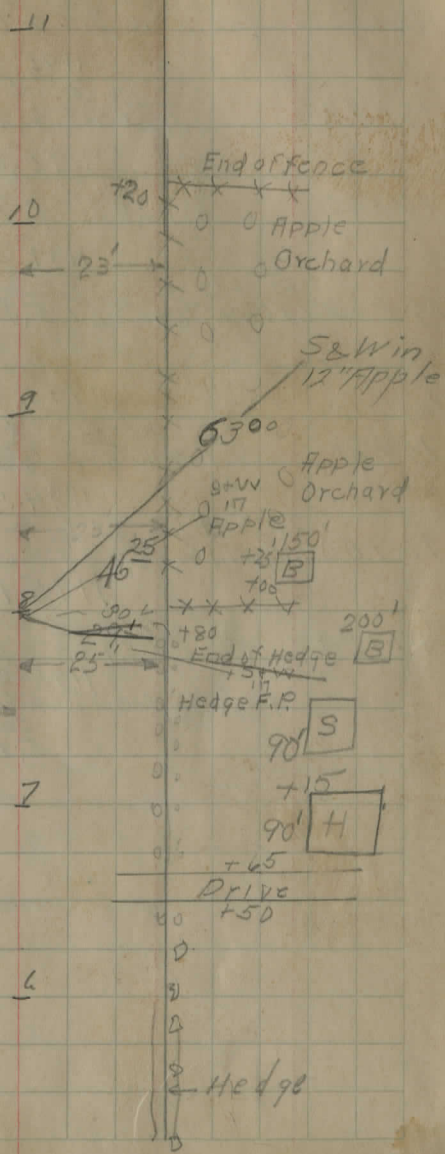 11
End of fence
+20
10
Apple
Orchard
23'
S & W in
12" Apple
9
63 00
Apple
Orchard
S+W
in
Apple
25
46
150'
+25
B
+00
8
200'
B
+80
End of Hedge
25
Hedge F.P.
S
90'
7
+15
90'
H
+65
Drive
+50
6
Hedge